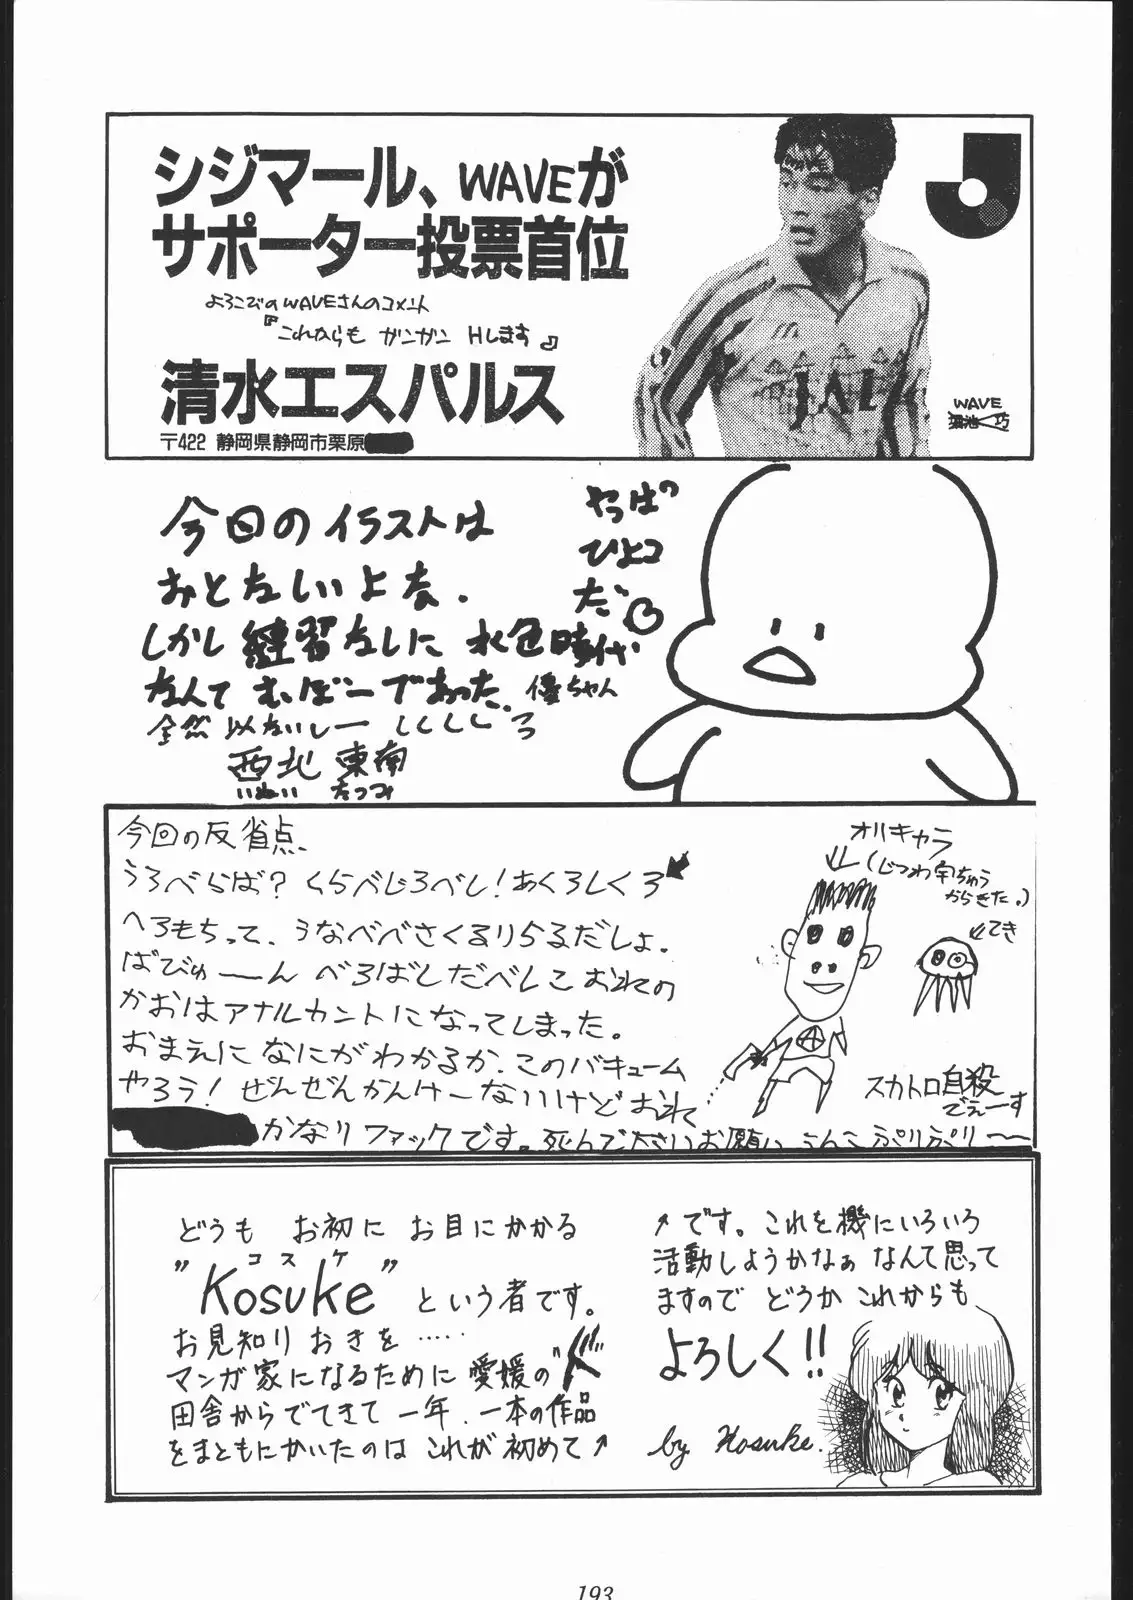 シジマール、WAVEが
サポーター投票首位
よろこびのWAVEさんのコメント
『これからも ガンガン Hします』
清水エスパルス
〒422 静岡県静岡市栗原
JAL
WAVE
今回のイラストは
おとなしいよな.
しかし練習なしに 水色時代
なんて むぼーであった. 優ちゃん
全然 似ないしー しくしくしろ
西北 東南
いぬい たつみ
やっぱり
ひよコ
だ
今回の反省点
うろべらば? くらべじろべし! あくろしくろ
へろもちって、うなべべさくるりらるだしょ.
ばびゅーーん べろばしだべしこ おれの
かおはアナルカントになってしまった。
おまえに なにがわかるか. このバキューム
やろう! ぜんぜんかんけーないけど おれ
かなりファックです。死んで下さいお願い うんこぷりぷりー
オリキャラ
(じつわ宇ちゅう
からきた。)
てき
スカトロ自殺
でぇーす
どうも お初に お目にかかる
コスケ
"Kosuke" という者です。
お見知り おきを ‥‥‥
マンガ家になるために 愛媛の"ド"
田舎からでてきて 一年. 一本の作品
をまともにかいたのは これが 初めて
です。これを機にいろいろ
活動しようかなぁ なんて思って
ますので どうか これからも
よろしく!!
by Kosuke.
193